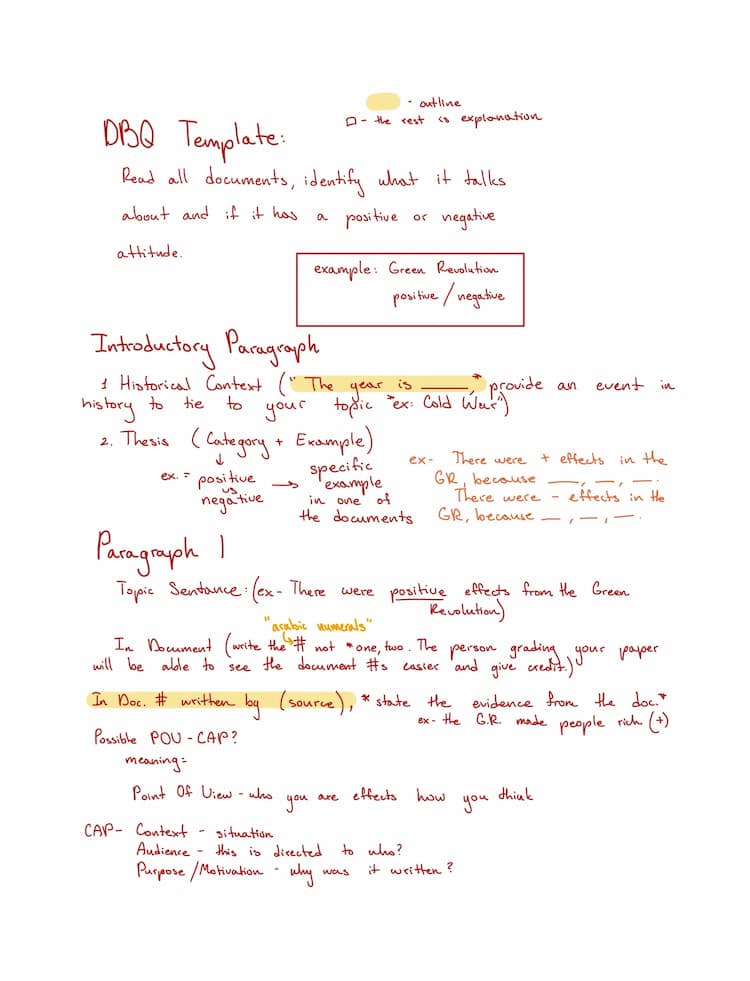 - outline
□ - the rest is explanation
DBQ Template:
Read all documents, identify what it talks
about and if it has a positive or negative
attitude.
example: Green Revolution
positive / negative
Introductory Paragraph
1 Historical Context ("The year is ______," provide an event in
history to tie to your topic "ex: Cold War")
2. Thesis (Category + Example)
ex. = positive vs negative → specific example in one of the documents
ex- There were + effects in the
GR, because __, __, __.
There were - effects in the
GR, because __, __, __.
Paragraph 1
Topic Sentance: (ex- There were positive effects from the Green
Revolution)
"arabic numerals"
In Document (write the # not *one, two. The person grading your paper
will be able to see the document #s easier and give credit.)
In Doc. # written by (source), *state the evidence from the doc.*
ex- the G.R. made people rich (+)
Possible POV - CAP?
meaning=
Point Of View - who you are effects how you think
CAP- Context - situation
Audience - this is directed to who?
Purpose/Motivation - why was it written?